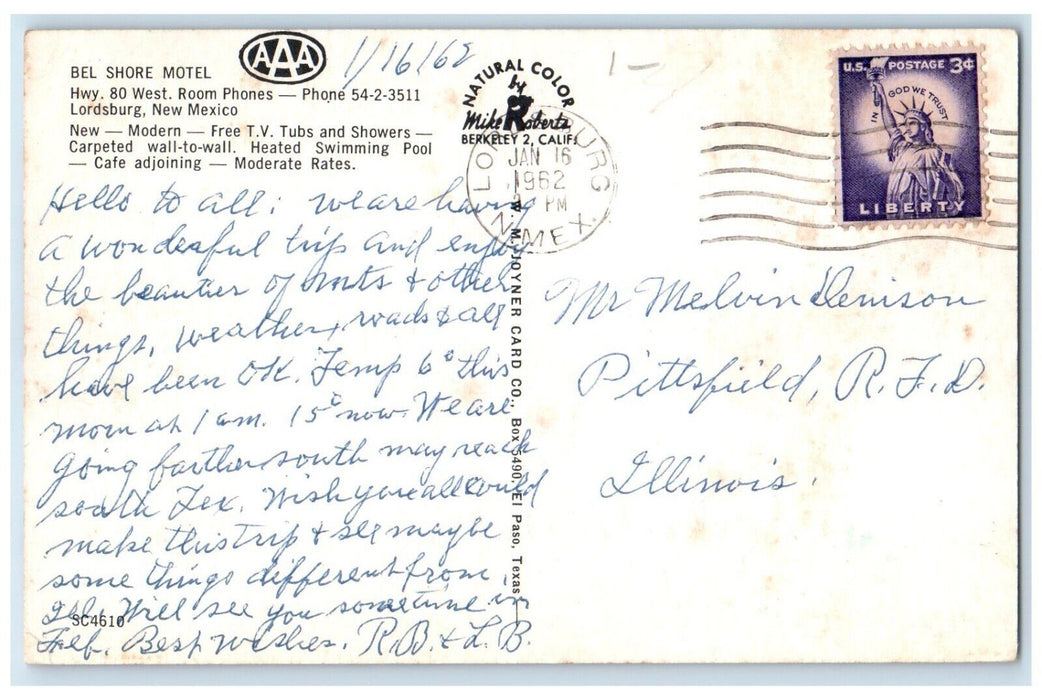 BEL SHORE MOTEL
Hwy. 80 West. Room Phones — Phone 54-2-3511
Lordsburg, New Mexico
New — Modern — Free T.V. Tubs and Showers —
Carpeted wall-to-wall. Heated Swimming Pool
— Cafe adjoining — Moderate Rates.
AAA
1/16/62
NATURAL COLOR
by
Mike Roberts
BERKELEY 2, CALIF.
JAN 16
1962
PM
N. MEX.
U.S. POSTAGE 3¢
IN GOD WE TRUST
LIBERTY
Hello to all: we are having
a wonderful trip and enjoy
the beauties of mts & other
things, weather, roads & all
have been OK. Temp 6° this
morn at 1 am. 15° now. We are
going farther south may reach
south Tex. Wish you all could
make this trip & see maybe
some things different from
Ill. Will see you sometime in
Feb. Best Wishes. R.B. & L.B.
SC4610
W. M. JOYNER CARD CO., Box 5490, El Paso, Texas
Mr Melvin Denison
Pittsfield, R.F.D.
Illinois.